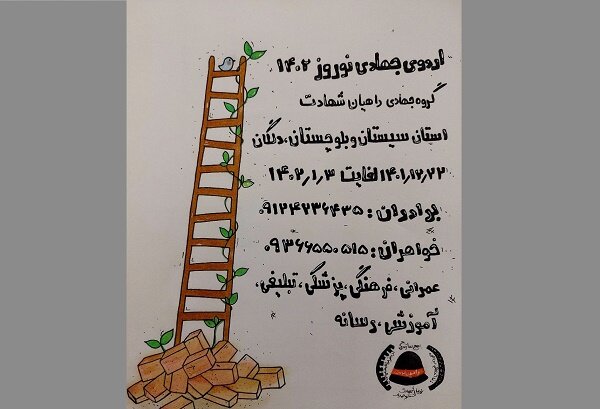 اردوی جهادی نوروز ۱۴۰۲
گروه جهادی راهیان شهادت
استان سیستان و بلوچستان، دلگان
۱۴۰۱/۱۲/۲۲ لغایت ۱۴۰۲/۱/۳
برادران: ۰۹۱۲۴۲۳۶۴۳۵
خواهران: ۰۹۳۶۶۵۵۰۵۱۵
عمرانی، فرهنگی، پزشکی، تبلیغی،
آموزشی، رسانه